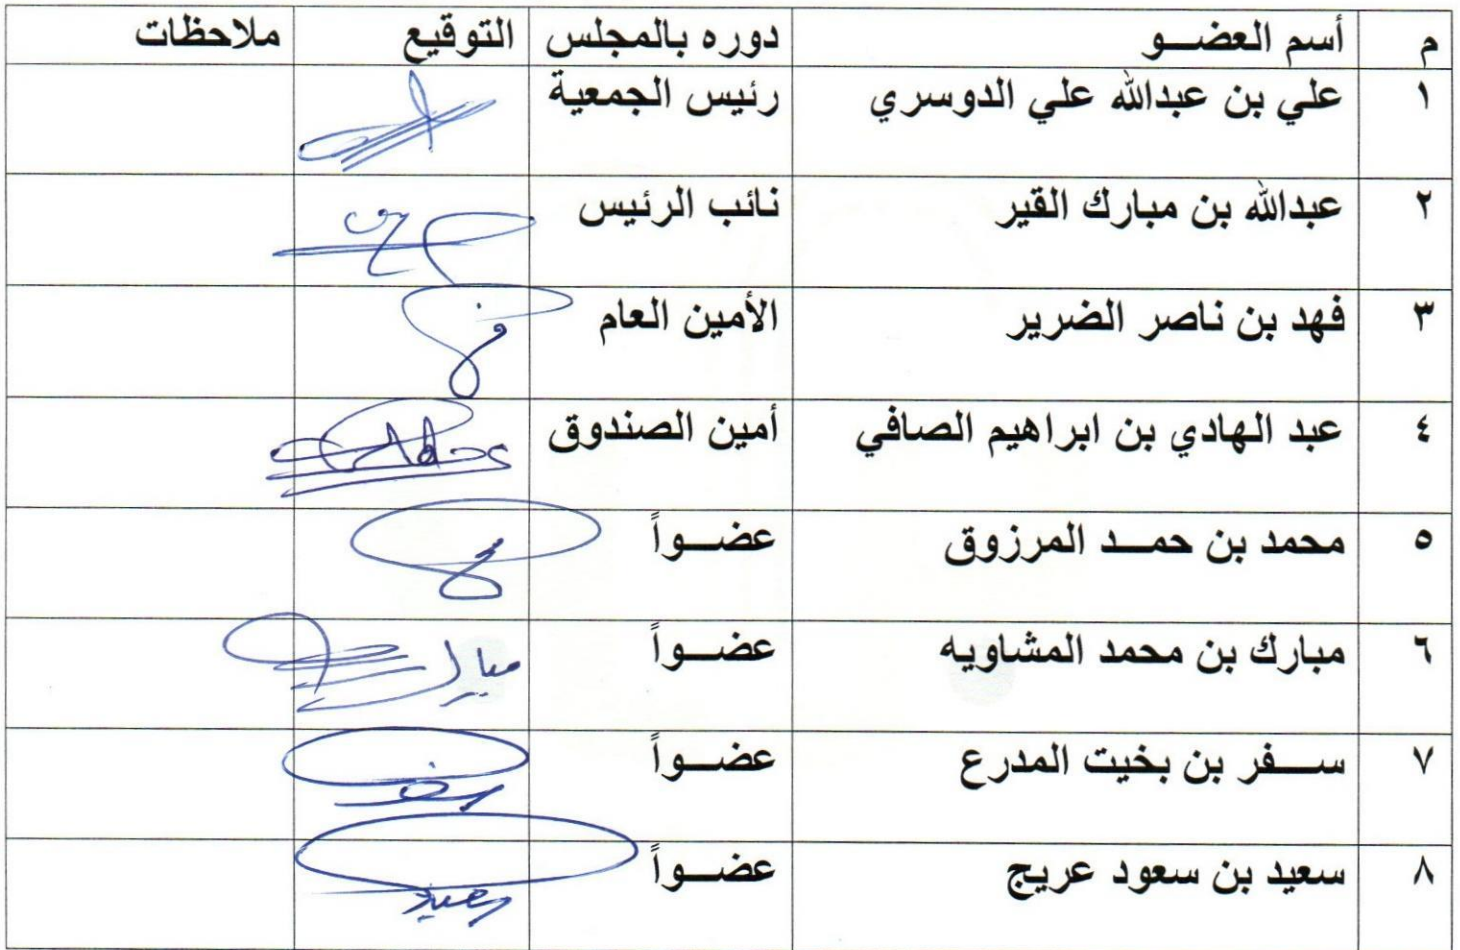 م أسم العضـــو دوره بالمجلس التوقيع ملاحظات
١ علي بن عبدالله علي الدوسري رئيس الجمعية
٢ عبدالله بن مبارك القير نائب الرئيس
٣ فهد بن ناصر الضرير الأمين العام
٤ عبد الهادي بن ابراهيم الصافي أمين الصندوق
٥ محمد بن حمـــد المرزوق عضـــواً
٦ مبارك بن محمد المشاويه عضـــواً مبارك
٧ ســـفر بن بخيت المدرع عضـــواً سفر
٨ سعيد بن سعود عريج عضـــواً سعيد